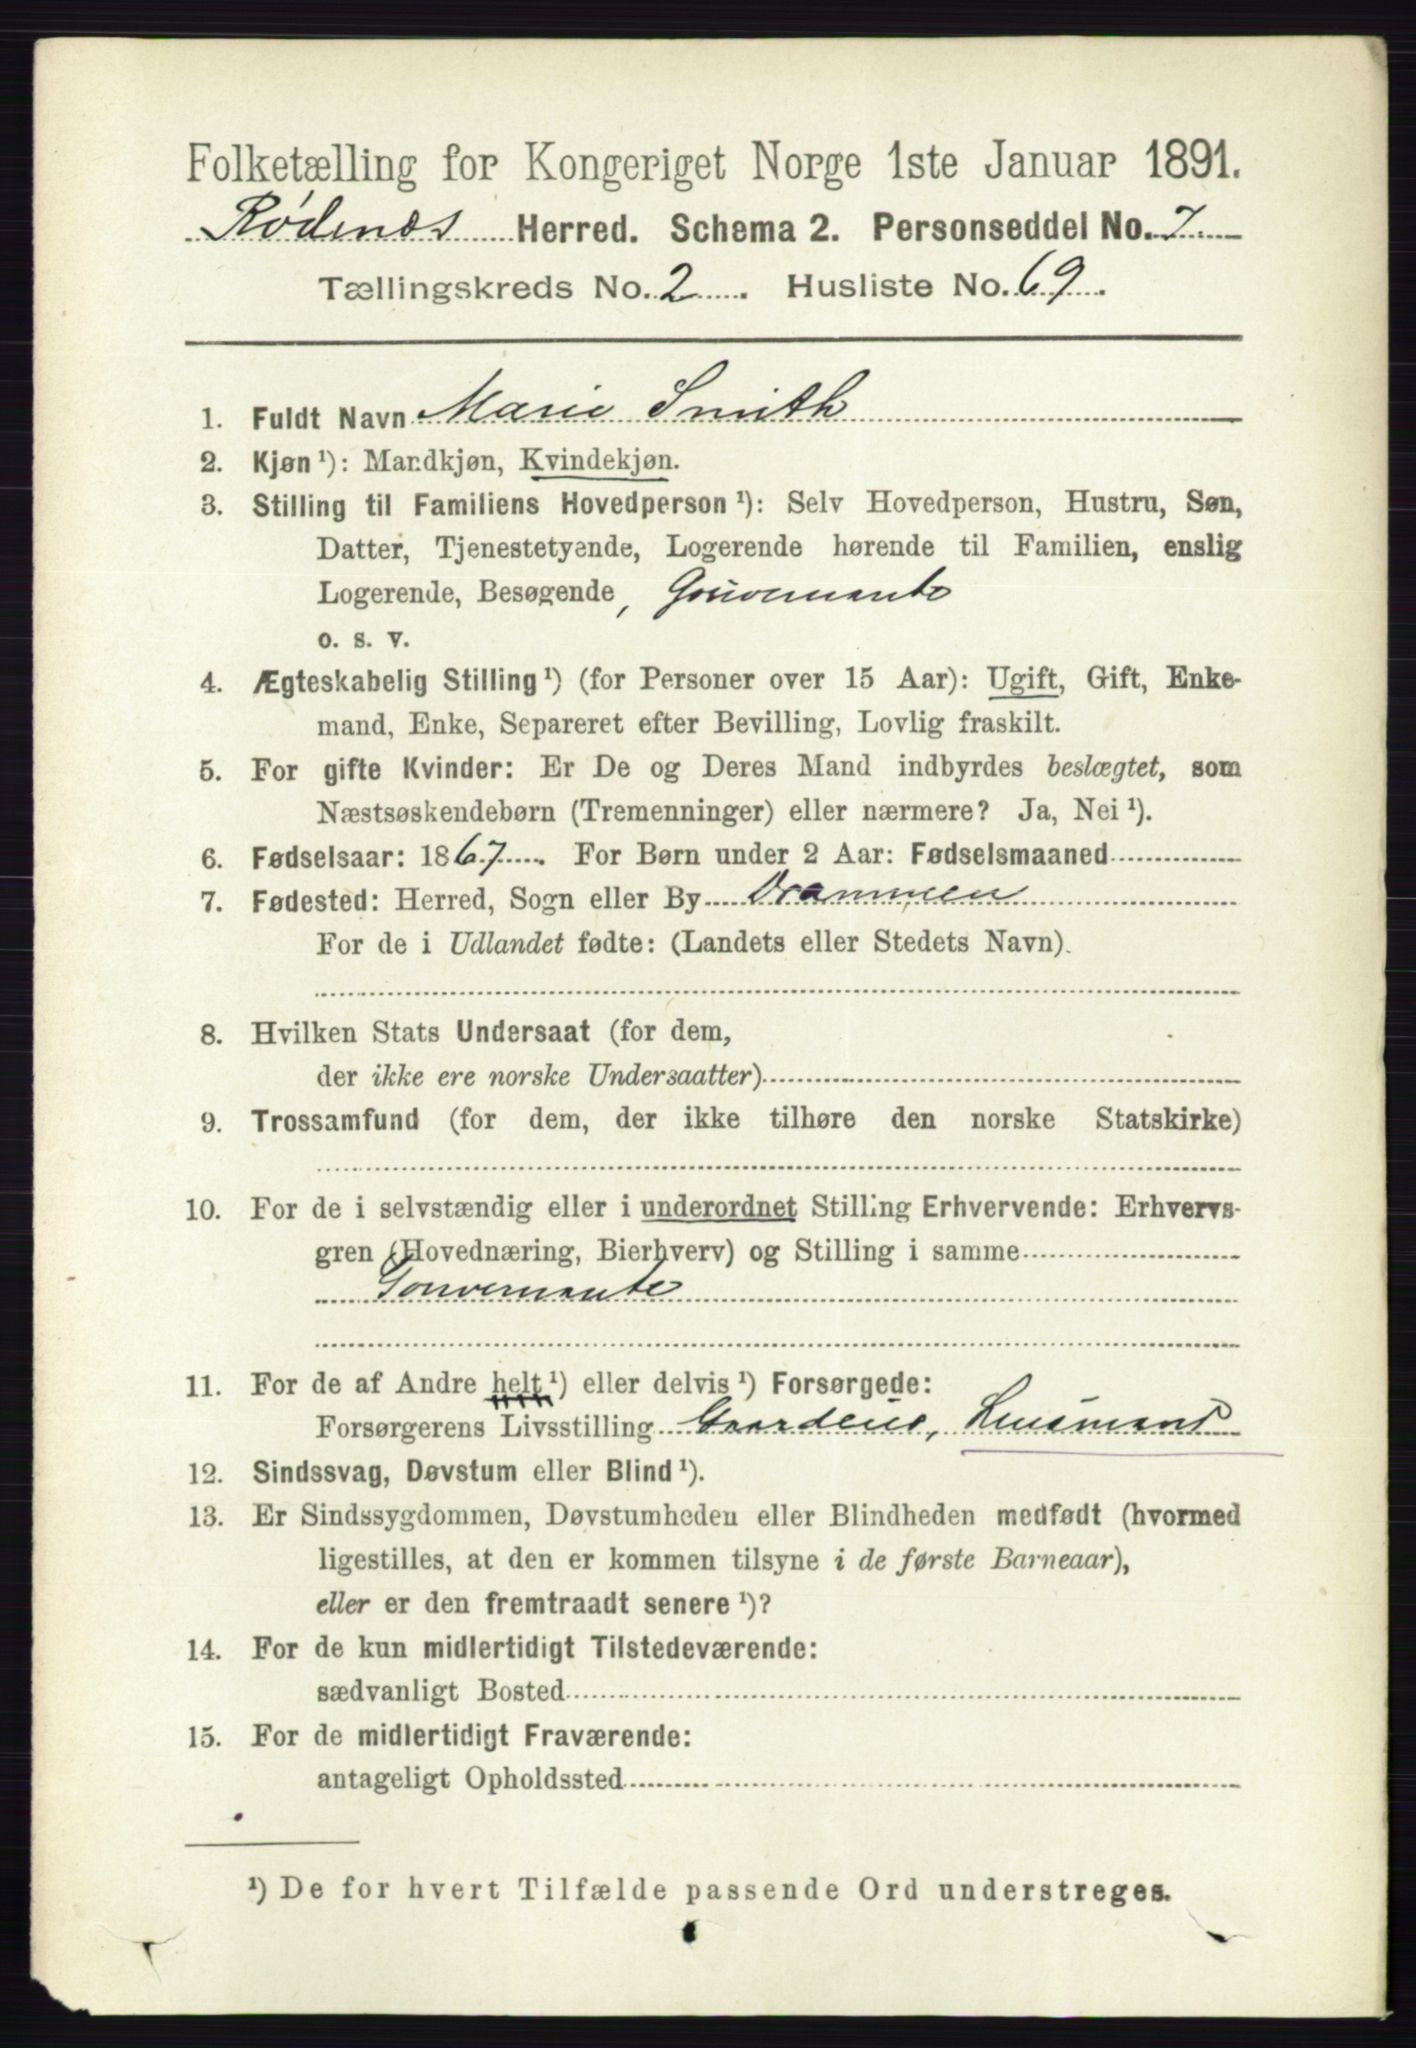 Folketælling for Kongeriget Norge 1ste Januar 1891.
Rødenæs Herred. Schema 2. Personseddel No. 7
Tællingskreds No. 2. Husliste No. 69.
1. Fuldt Navn Marie Smith
2. Kjøn ¹): Mandkjøn, Kvindekjøn.
3. Stilling til Familiens Hovedperson ¹): Selv Hovedperson, Hustru, Søn,
Datter, Tjenestetyende, Logerende hørende til Familien, enslig
Logerende, Besøgende, Gouvernante
o. s. v.
4. Ægteskabelig Stilling ¹) (for Personer over 15 Aar): Ugift, Gift, Enke-
mand, Enke, Separeret efter Bevilling, Lovlig fraskilt.
5. For gifte Kvinder: Er De og Deres Mand indbyrdes beslægtet, som
Næstsøskendebørn (Tremenninger) eller nærmere? Ja, Nei ¹).
6. Fødselsaar: 1867. For Børn under 2 Aar: Fødselsmaaned
7. Fødested: Herred, Sogn eller By Drammen
For de i Udlandet fødte: (Landets eller Stedets Navn).
8. Hvilken Stats Undersaat (for dem,
der ikke ere norske Undersaatter)
9. Trossamfund (for dem, der ikke tilhøre den norske Statskirke)
10. For de i selvstændig eller i underordnet Stilling Erhvervende: Erhvervs-
gren (Hovednæring, Bierhverv) og Stilling i samme
Gouvernante
11. For de af Andre helt ¹) eller delvis ¹) Forsørgede:
Forsørgerens Livsstilling Gaardeier, Lensmand
12. Sindssvag, Døvstum eller Blind ¹).
13. Er Sindssygdommen, Døvstumheden eller Blindheden medfødt (hvormed
ligestilles, at den er kommen tilsyne i de første Barneaar),
eller er den fremtraadt senere ¹)?
14. For de kun midlertidigt Tilstedeværende:
sædvanligt Bosted
15. For de midlertidigt Fraværende:
antageligt Opholdssted
¹) De for hvert Tilfælde passende Ord understreges.